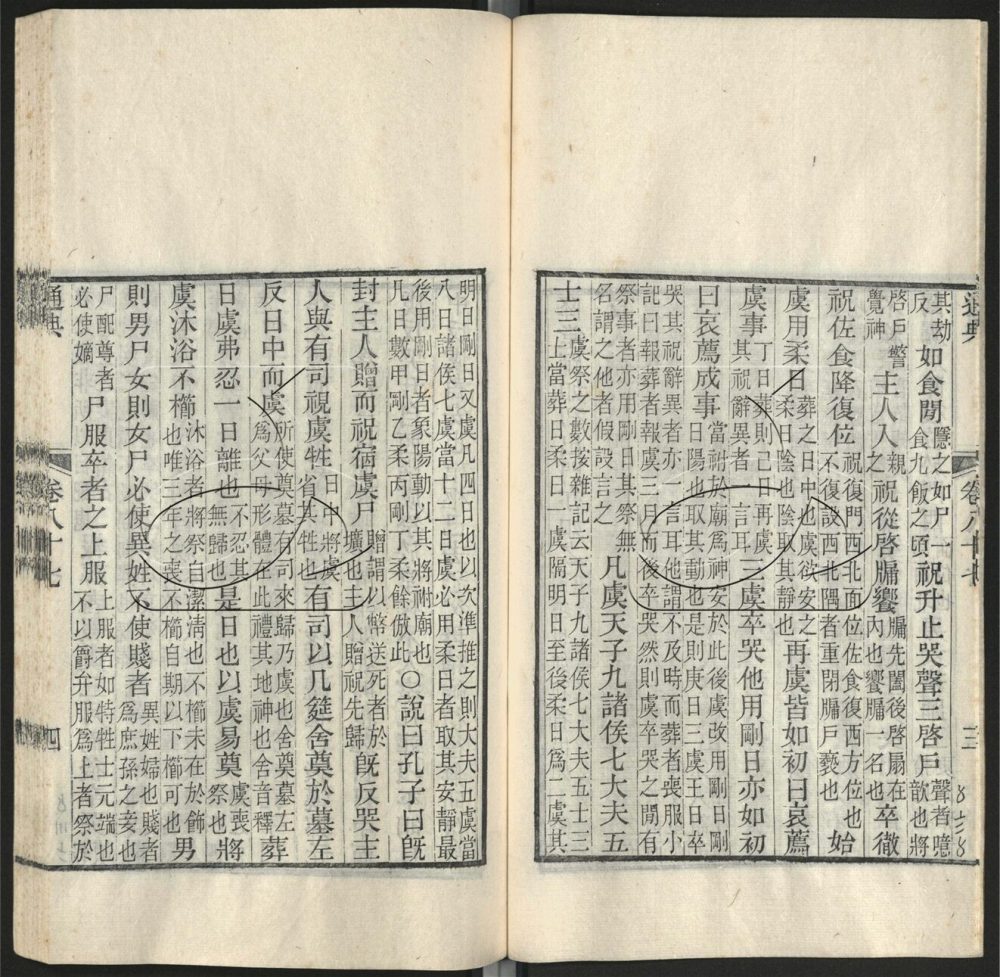 通典 卷八十七 三
其劫
反
如食閒
隱之如尸一
食九飯之頃
祝升止哭聲三啓戶
聲者噫
歆也將
啓戶警
覺神
主人入
親
之
祝從啓牖饗
牖先闔後啓扇在
內也饗牖一名也
卒徹
祝佐食降復位
祝復門西北面位佐食復西方位也
不復設西北隅者重閉牖戶褻也
始
虞用柔日
葬之日日中也虞欲安之
柔日陰也陰取其靜也
再虞皆如初曰哀薦
虞事
丁日葬則己日再虞
其祝辭異者一言耳
三虞卒哭他用剛日亦如初
曰哀薦成事
當祔於廟爲神安於此後虞改用剛日剛
日陽也取其動也是則庚日三虞壬日卒
哭其祝辭異者亦一言耳他謂不及時而葬者喪服小
記曰報葬者報虞三月而後卒哭然則虞卒哭之閒有
祭事者亦用剛日其祭無
名謂之他者假設言之
凡虞天子九諸侯七大夫五
士三
虞祭之數按雜記云天子九諸侯七大夫五士三
士當葬日柔日一虞隔明日至後柔日爲二虞其
明日剛日又虞凡四日也以次準推之則大夫五虞當
八日諸侯七虞當十二日虞必用柔日者取其安靜最
後用剛日者象陽動以其將祔廟也
凡日數甲剛乙柔丙剛丁柔餘倣此
○說曰孔子曰旣
封主人贈而祝宿虞尸
贈謂以幣送死者於
壙也主人贈祝先歸
旣反哭主
人與有司視虞牲
日中將虞
省其牲也
有司以几筵舍奠於墓左
反日中而虞
所使奠墓有司來歸乃虞也舍奠墓左
爲父母形體在此禮其地神也舍音釋
葬
日虞弗忍一日離也
不忍其
無歸也
是日也以虞易奠
虞喪
祭也
將
虞沐浴不櫛
沐浴者將祭自潔淸也不櫛未在於飾
也唯三年之喪不櫛自期以下櫛可也
男
則男尸女則女尸必使異姓不使賤者
異姓婦也賤者
爲庶孫之妾也
尸配尊者
必使嫡
尸服卒者之上服
上服者如特牲士元端也
不以爵弁服爲上者祭於
通典 卷八十七 四